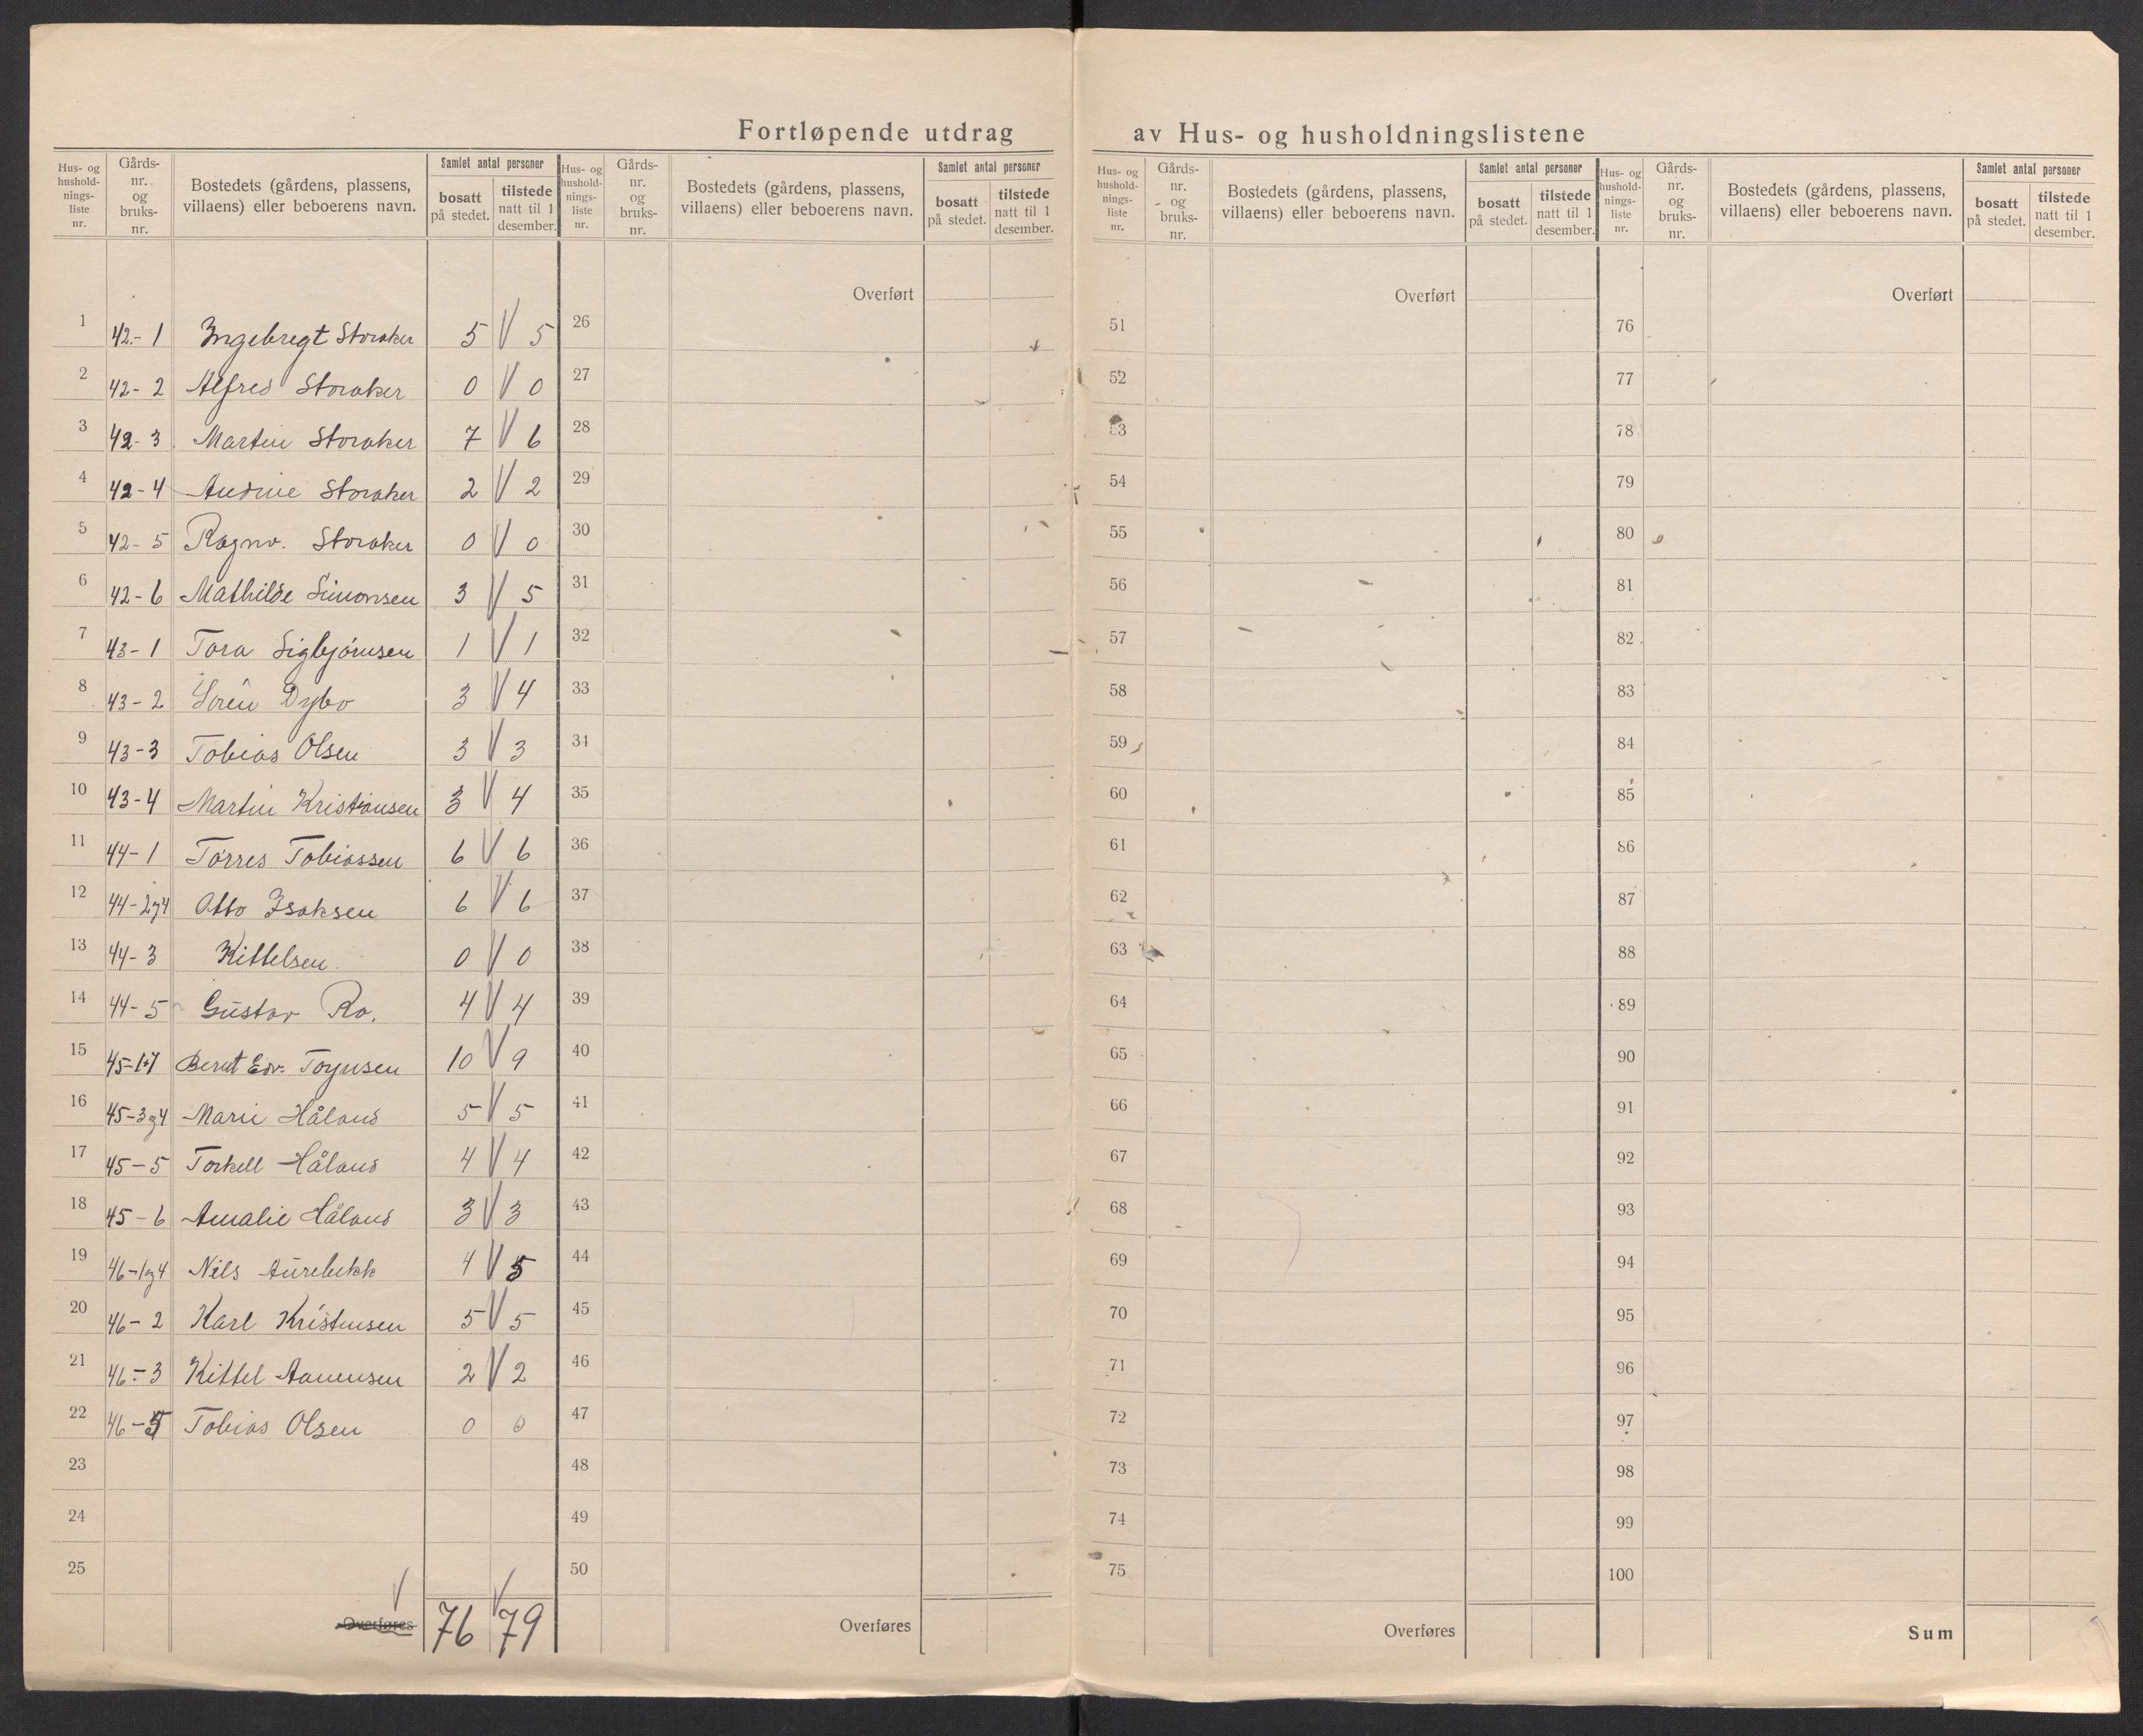 Fortløpende utdrag av Hus- og husholdningslistene
Hus- og hushold-nings-liste nr. Gårds-nr. og bruks-nr. Bostedets (gårdens, plassens, villaens) eller beboerens navn. Samlet antal personer bosatt på stedet. tilstede natt til 1 desember.
Hus- og hushold-nings-liste nr. Gårds-nr. og bruks-nr. Bostedets (gårdens, plassens, villaens) eller beboerens navn. Samlet antal personer bosatt på stedet. tilstede natt til 1 desember.
Hus- og hushold-nings-liste nr. Gårds-nr. og bruks-nr. Bostedets (gårdens, plassens, villaens) eller beboerens navn. Samlet antal personer bosatt på stedet. tilstede natt til 1 desember.
Hus- og hushold-nings-liste nr. Gårds-nr. og bruks-nr. Bostedets (gårdens, plassens, villaens) eller beboerens navn. Samlet antal personer bosatt på stedet. tilstede natt til 1 desember.
Overført Overført Overført
1 42-1 Ingebregt Storaker 5 5 26 51 76
2 42-2 Alfred Storaker 0 0 27 52 77
3 42-3 Martin Storaker 7 6 28 53 78
4 42-4 Andrine Storaker 2 2 29 54 79
5 42-5 Ragnv. Storaker 0 0 30 55 80
6 42-6 Mathilde Simonsen 3 5 31 56 81
7 43-1 Tora Sigbjørnsen 1 1 32 57 82
8 43-2 Søren Dybo 3 4 33 58 83
9 43-3 Tobias Olsen 3 3 34 59 84
10 43-4 Martin Kristiansen 3 4 35 60 85
11 44-1 Tørres Tobiassen 6 6 36 61 86
12 44-2og4 Otto Isaksen 6 6 37 62 87
13 44-3 Kittelsen 0 0 38 63 88
14 44-5 Gustav Ro. 4 4 39 64 89
15 45-1+7 Bernt Edv. 10 9 40 65 90
16 45-3og4 Marie Håland 5 5 41 66 91
17 45-5 Torkell Håland 4 4 42 67 92
18 45-6 Amalie Håland 3 3 43 68 93
19 46-1og4 Nils Aurebekk 4 5 44 69 94
20 46-2 Karl Kristensen 5 5 45 70 95
21 46-3 Kittel Aanensen 2 2 46 71 96
22 46-5 Tobias Olsen 0 0 47 72 97
23 48 73 98
24 49 74 99
25 50 75 100
Overføres 76 79 Overføres Overføres Sum